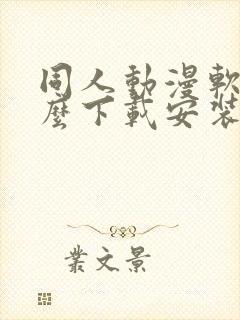 同人動漫軟
麼下載安裝
業文景